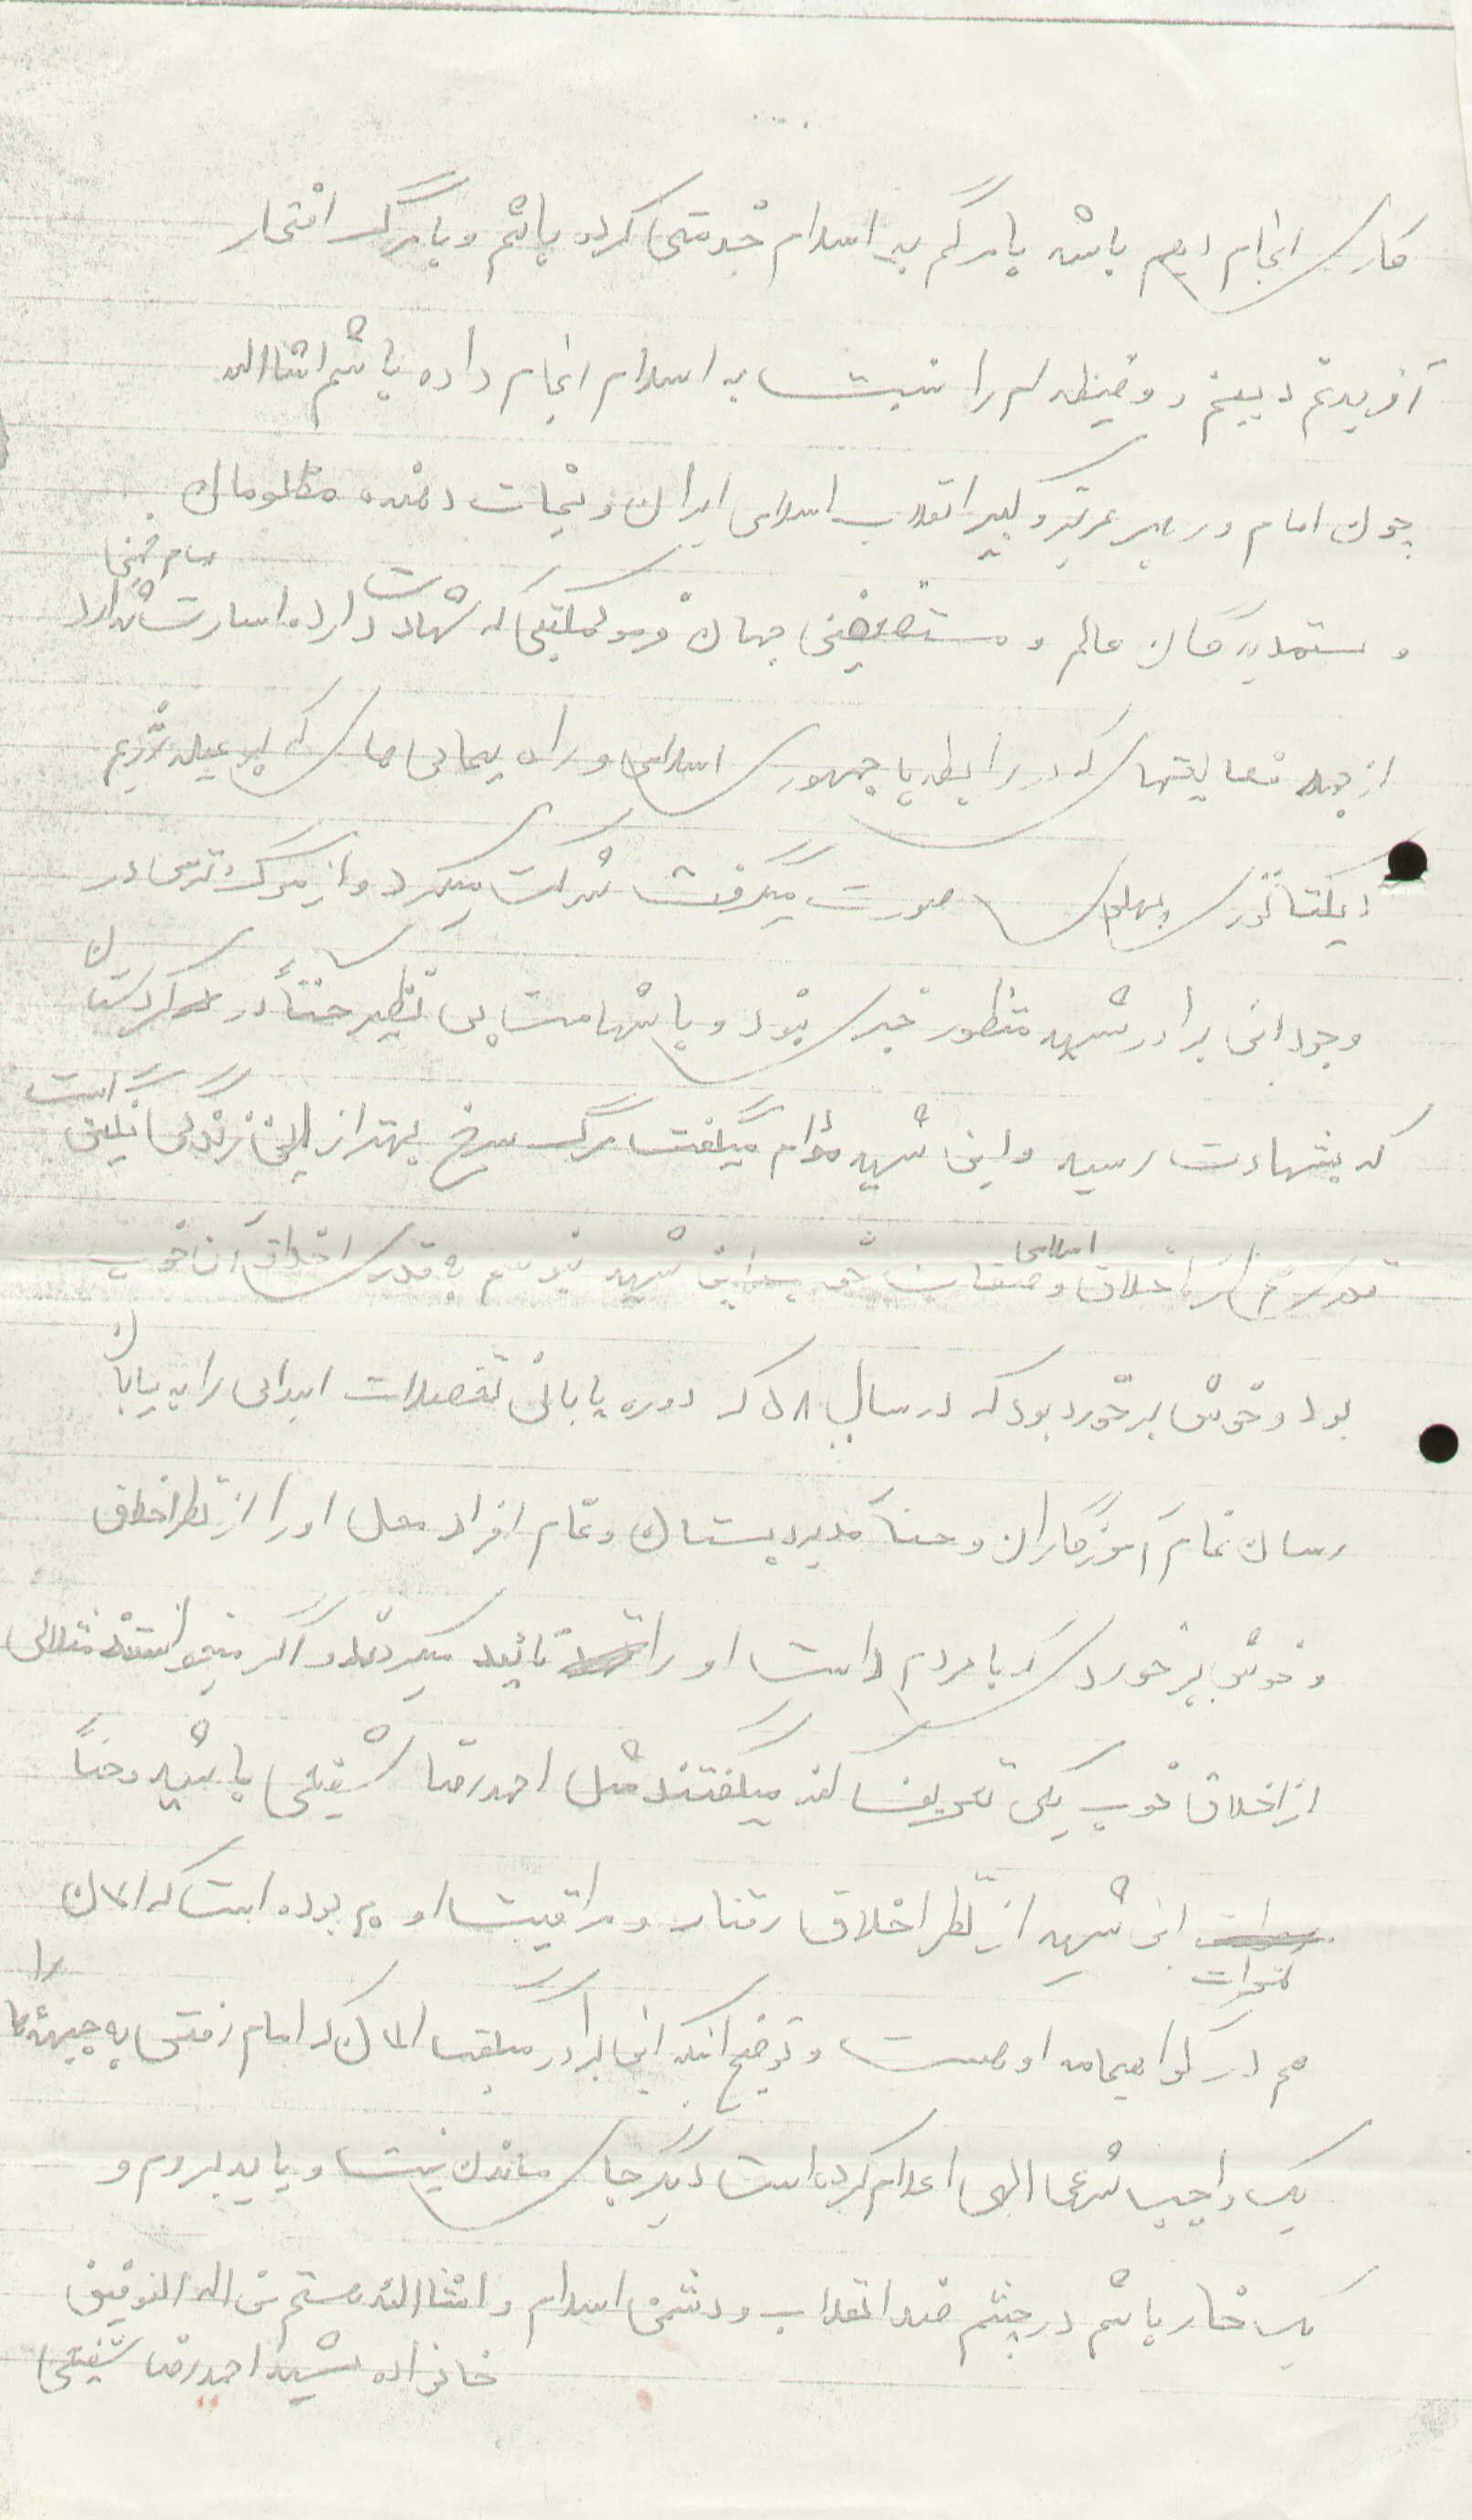 کاری انجام دهم باشد با مرگم به اسلام خدمتی کرده باشم و با مرگ افتخار
آفرینم و وظیفه ام را نسبت به اسلام انجام داده باشم انشاالله
چون امام و رهبر عزیز و کبیر انقلاب اسلامی ایران و نجات دهنده مظلومان
امام خمینی
و ستمدیدگان عالم و مستضعفین جهان فرمود مملکتی که شهادت دارد اسارت ندارد
از جمله فعالیتهای که در رابطه با جمهوری اسلامی و راه پیمائی های که بر علیه رژیم
دیکتاتوری پهلوی صورت میگرفت شرکت میکرد و از مرگ ترسی در
وجود این برادر شهید منظور خبری نبود و با شهامت بی نظیر حتتاً در کردستان
که بشهادت رسید و این شهید مدام میگفت مرگ سرخ بهتر از این زندگی ننگین است
اسلامی
اخلاق و صفات این شهید بنویسم به قدری اخلاق آن خوب
بود و خوش برخورد بود که در سال ۵۸ که دوره پایانی تحصیلات ابتدائی را به پایان
رسان تمام آموزگاران و حتاً مدیر دبستان و تمام افراد محل او را از نظر اخلاق
و خوش برخوردی که با مردم داشت او را تائید میکردند و اگر میخواستند مثالی
از اخلاق خوب یکی تعریف کنند میگفتند مثل احمدرضا شفیعی باشید و حتاً
نمرات این شهید از نظر اخلاق رفتار و مراقبت او پر بوده است که الان
هم در گواهینامه او هست و توضیح اینکه این برادر میگفت الان که امام رفتن به جبهه ها را
یک واجب شرعی الهی اعلام کرده است دیگر جای ماندن نیست و باید بروم و
یک خار باشم در چشم ضد انقلاب و دشمن اسلام و انشاالله هستم من الله التوفیق
خانواده شهید احمدرضا شفیعی